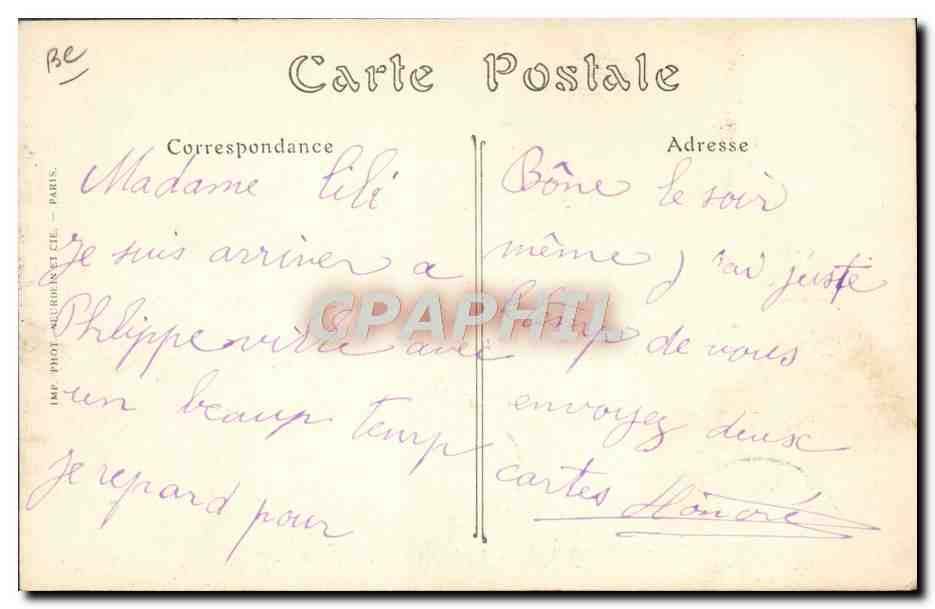 Be
Carte Postale
Correspondance
Madame Lili
Je suis arriver a
Phlippeville avec
un beaup temp
Je repard pour
Adresse
Bône le soir
même j'ai juste
le temp de vous
envoyez deux
cartes Honoré
IMP. PHOT. NEURDEIN ET CIE. — PARIS.
CPAPHIL